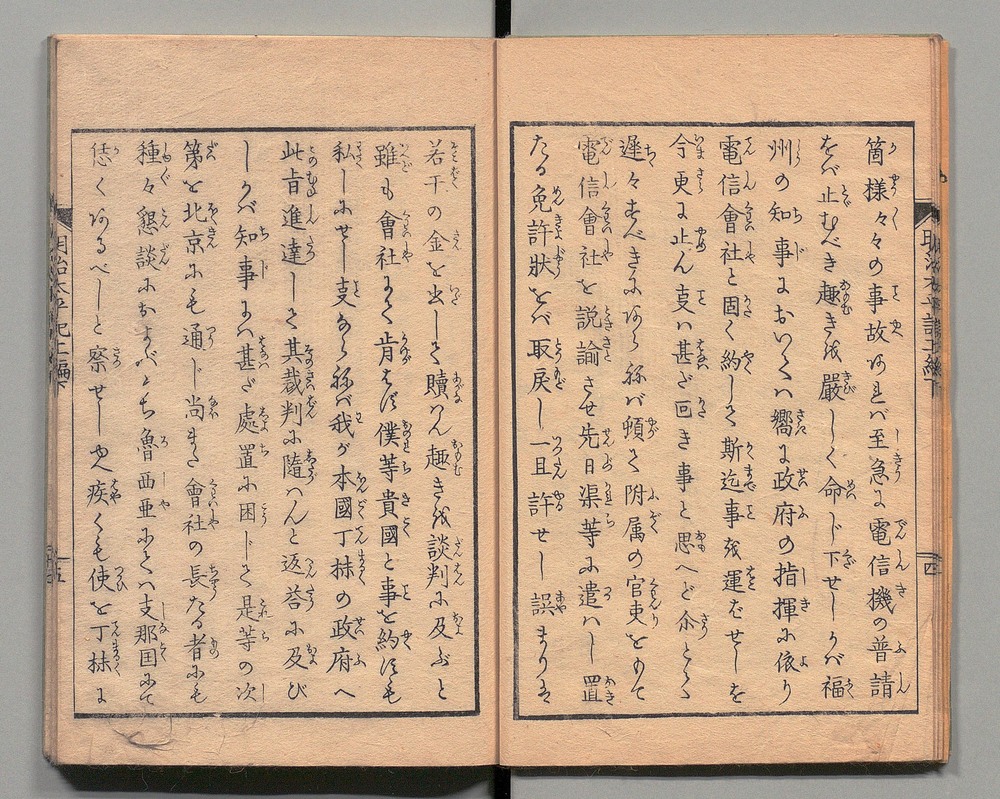 箇様々々の事故あれバ至急に電信機の普請
をバ止むべき趣きを嚴しく命じ下せしかバ福
州の知事においてハ嚮に政府の指揮に依り
電信會社と固く約して斯迄事を運ばせしを
今更に止ん𫝂ハ甚だ回き事と思へど余とて
遅々すべきにあらねば頓て附属の官吏をもて
電信會社を説諭させ先日渠等に遣ハし置
たる免許狀をバ取戻し一旦許せし誤まりを
若干の金を出して贖はん趣きを談判に及ぶと
雖も會社にて肯はず僕等貴國と事を約すも
私しにせし𫝂ならねば我が本國丁抹の政府へ
此旨進達して其裁判に隨ハんと返答に及び
しかバ知事にハ甚だ處置に困じて是等の次
第を北京にも通じ尚また會社の長たる者にも
種々懇談におよバんとち魯西亜にてハ支那国にて
恁くあるべしと察せしや疾くも使を丁抹に
明治太平記上編下
四
五